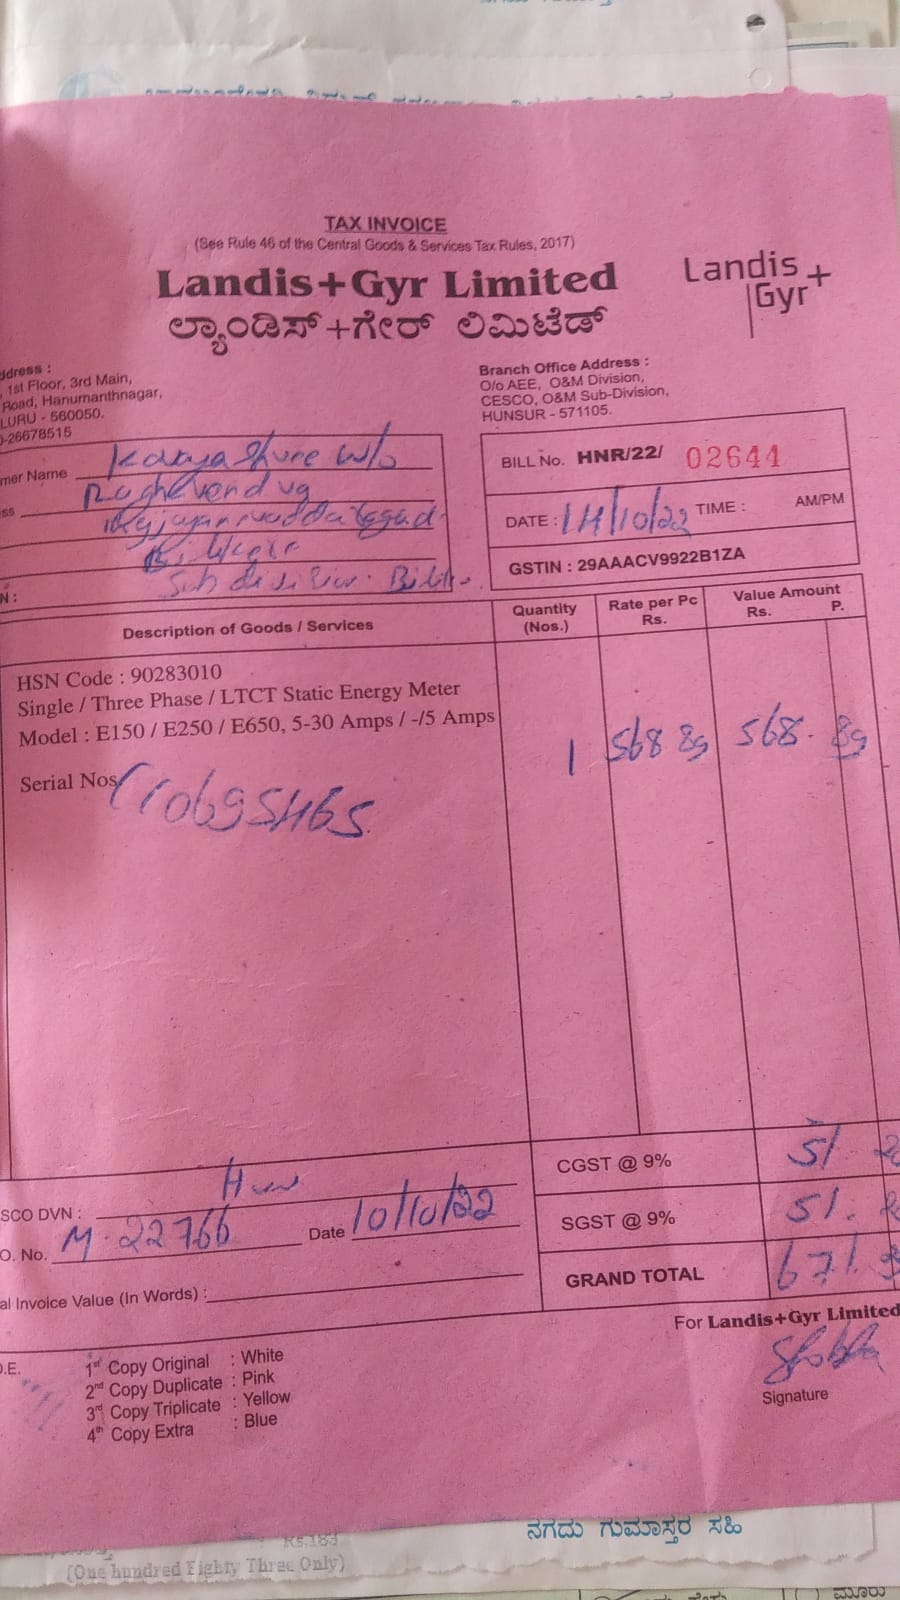 TAX INVOICE
(See Rule 46 of the Central Goods & Services Tax Rules, 2017)
Landis+Gyr Limited
ಲ್ಯಾಂಡಿಸ್+ಗೇರ್ ಲಿಮಿಟೆಡ್
Landis
Gyr+
ddress :
1st Floor, 3rd Main,
Road, Hanumanthnagar,
LURU - 560050.
-26678515
Branch Office Address :
O/o AEE, O&M Division,
CESCO, O&M Sub-Division,
HUNSUR - 571105.
mer Name W/o
ss
Sub division.
N :
BILL No. HNR/22/ 02644
DATE : 14/10/22 TIME : AM/PM
GSTIN : 29AAACV9922B1ZA
Description of Goods / Services
Quantity (Nos.)
Rate per Pc Rs.
Value Amount Rs. P.
HSN Code : 90283010
Single / Three Phase / LTCT Static Energy Meter
Model : E150 / E250 / E650, 5-30 Amps / -/5 Amps
1 568 89 568. 89
Serial Nos
CGST @ 9% 51
SGST @ 9% 51.
GRAND TOTAL 671.
SCO DVN :
O. No. M-22766 Date 10/10/22
al Invoice Value (In Words) :
For Landis+Gyr Limited
Signature
O.E.
1st Copy Original : White
2nd Copy Duplicate : Pink
3rd Copy Triplicate : Yellow
4th Copy Extra : Blue
ನಗದು ಗುಮಾಸ್ತರ ಸಹಿ
Rs.183
(One hundred Eighty Three Only)